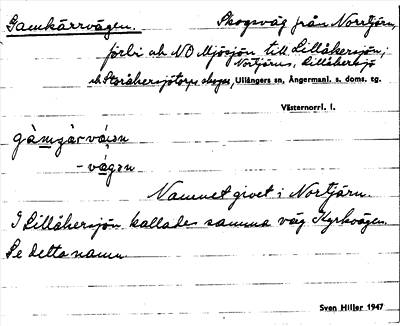 Gamkärrvägen.
Skogsväg från Norrtjärn,
förbi ch NO Mjösjön till Lillåkersjön;
Nortjärns, Lillåkersjö
ch Storåkersjötorps skogar, Ullångers sn, Ångermanl. s. doms. tg.
Västernorrl. l.
gàmgàrvá,ɜn
-vàgɜn
Namnet givet i Nortjärn.
I Lillåkersjön kallades samma väg Kyrkvägen.
Se detta namn.
Sven Hiller 1947